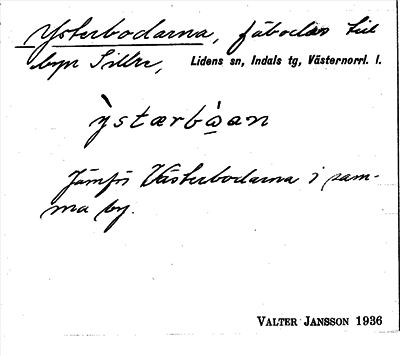 Ysterbodarna, fäbodar till
byn Sillre, Lidens sn, Indals tg, Västernorrl. l.
ỳstærbò̲an
Jämför Västerbodarna i sam-
ma by.
VALTER JANSSON 1936